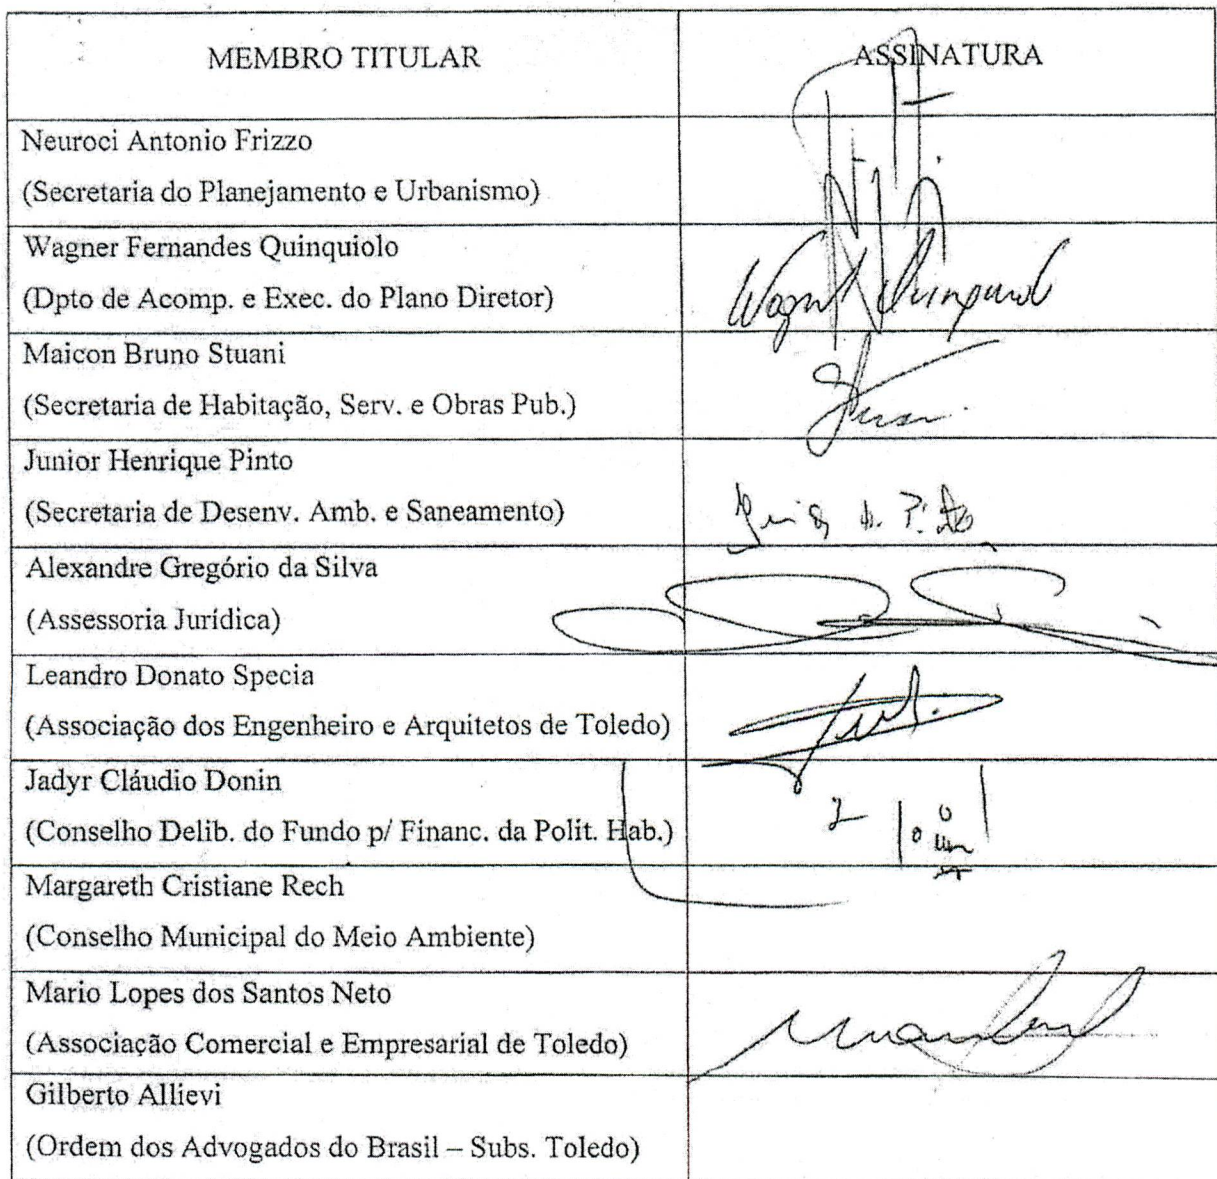 MEMBRO TITULAR ASSINATURA
Neuroci Antonio Frizzo
(Secretaria do Planejamento e Urbanismo)
Wagner Fernandes Quinquiolo
(Dpto de Acomp. e Exec. do Plano Diretor)
Maicon Bruno Stuani
(Secretaria de Habitação, Serv. e Obras Pub.)
Junior Henrique Pinto
(Secretaria de Desenv. Amb. e Saneamento)
Alexandre Gregório da Silva
(Assessoria Jurídica)
Leandro Donato Specia
(Associação dos Engenheiro e Arquitetos de Toledo)
Jadyr Cláudio Donin
(Conselho Delib. do Fundo p/ Financ. da Polit. Hab.)
Margareth Cristiane Rech
(Conselho Municipal do Meio Ambiente)
Mario Lopes dos Santos Neto
(Associação Comercial e Empresarial de Toledo)
Gilberto Allievi
(Ordem dos Advogados do Brasil – Subs. Toledo)